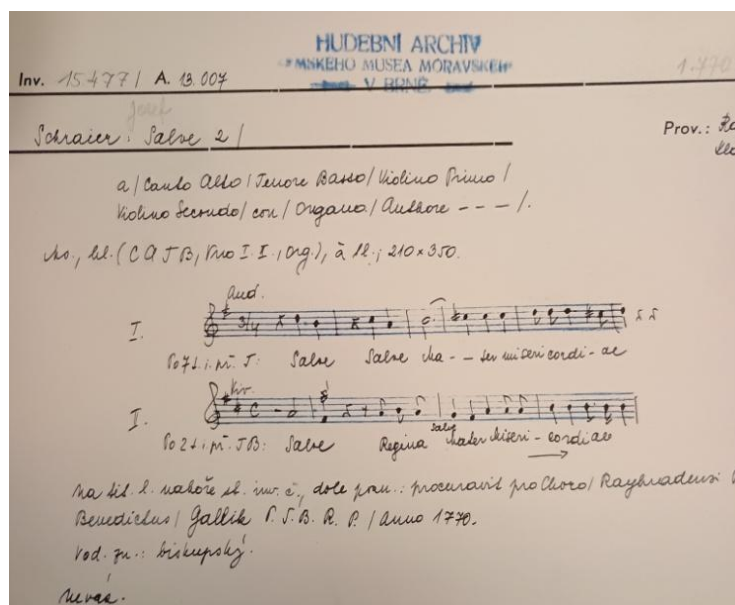 HUDEBNÍ ARCHIV
MSKÉHO MUSEA MORAVSKÉH
V BRNĚ
Inv. 15477/ A. 13.007
1.770
Josef
Schraier: Salve 2/
Prov.:
a/ Canto Alto/ Tenore Basso/ Violino Primo/
Violino Secondo/ con/ Organo/ Authore - - - /.
(C A T B, Vno I. II., Org.), à 1l.; 210 x 350.
And.
I.
T: Salve Salve Ma - - ter misericordi - ae
I.
Salve Regina Salve Mater Miseri - cordiae
Na tit. l. nahoře st. inv. č., dole pozn.: procuravit pro Choro/ Rayhradensi
Benedictus/ Gallik P. S. B. R. P. / Anno 1770.
Vod. zn.: biskupský.